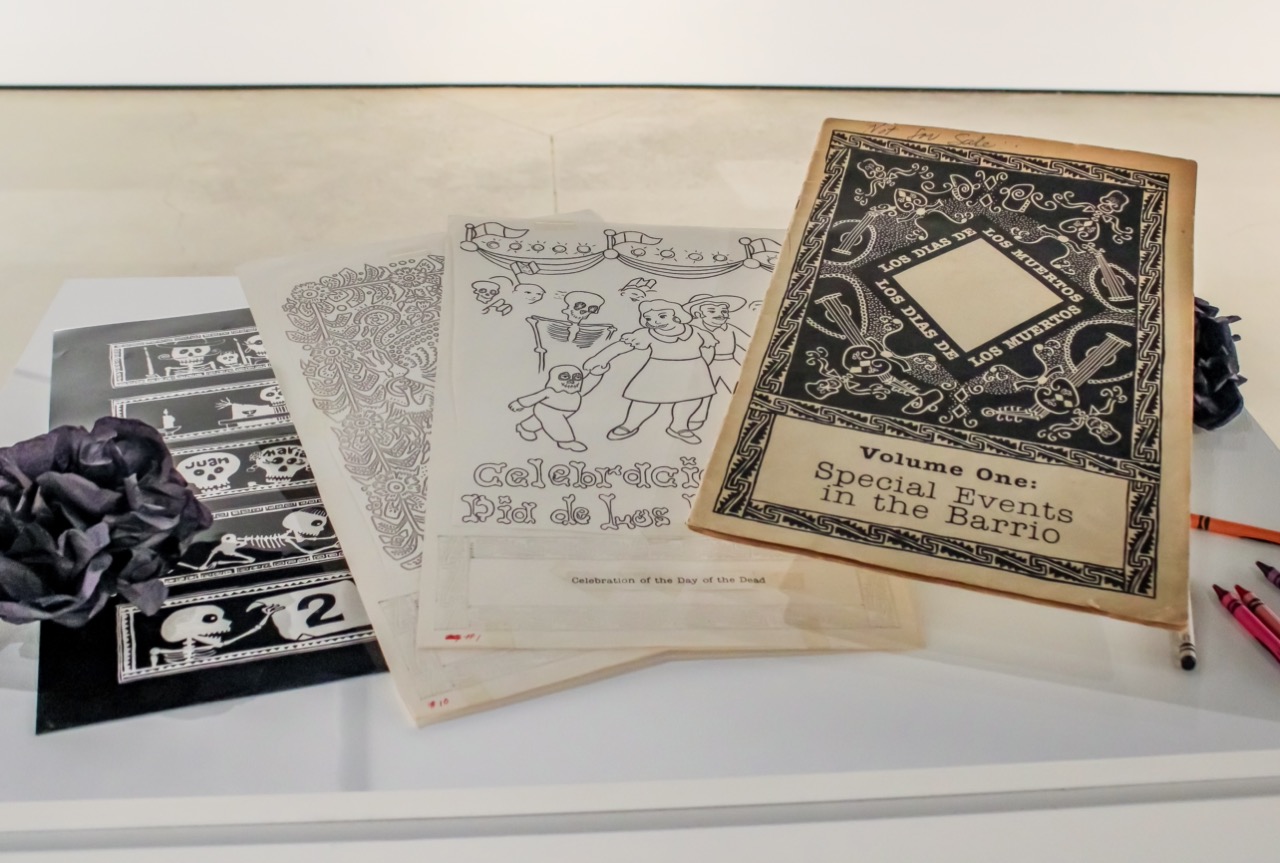 Juan
Maria
2
#10
Celebració
Día de Los
Celebration of the Day of the Dead
#1
Not for Sale
LOS DIAS DE
LOS MUERTOS
LOS DIAS DE
LOS MUERTOS
Volume One:
Special Events
in the Barrio